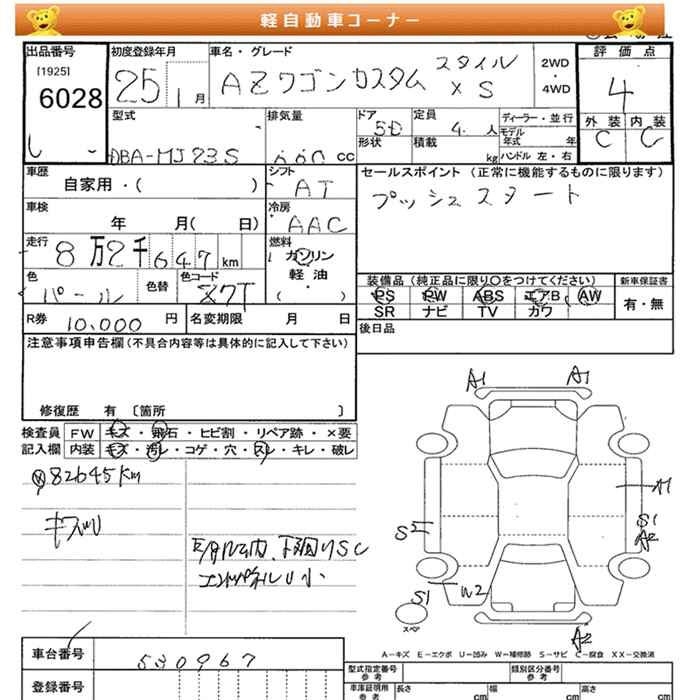 軽自動車コーナー
出品番号
[1925]
6028
初度登録年月
25 1月
車名・グレード
AZワゴンカスタム スタイル XS
2WD
・
4WD
評価点
4
外装 内装
C C
型式
DBA-MJ23S
排気量
660 cc
ドア 形状
5D
定員
4 人
積載
kg
ディーラー・並行
モデル年式 年
ハンドル 左・右
車歴
自家用・( )
シフト
AT
セールスポイント (正常に機能するものに限ります)
プッシュスタート
車検
年 月( 日)
冷房
AAC
走行
8万2千647km
燃料
ガソリン
軽油・
( )
色
パール
色替
色コード
Z7T
装備品 (純正品に限り〇をつけてください)
PS PW ABS エアB AW
SR ナビ TV カワ
新車保証書
有・無
R券 10,000円
名変期限 月 日
後日品
注意事項申告欄(不具合内容等は具体的に記入して下さい)
修復歴 有 〔箇所 〕
検査員
記入欄
FW キズ・飛石・ヒビ割・リペア跡・×要
内装 キズ・汚レ・コゲ・穴・スレ・キレ・破レ
82645Km
キズU
下回りSC
A1 A1
A1
S1
A2
S2
W2
S1
スペア
A2
A-キズ E-エクボ U-凹み W-補修跡 S-サビ C-腐食 XX-交換済
車台番号
530967
登録番号
型式指定番号
参考
類別区分番号
参考
車庫証明用
参考
長さ cm
幅 cm
高さ cm